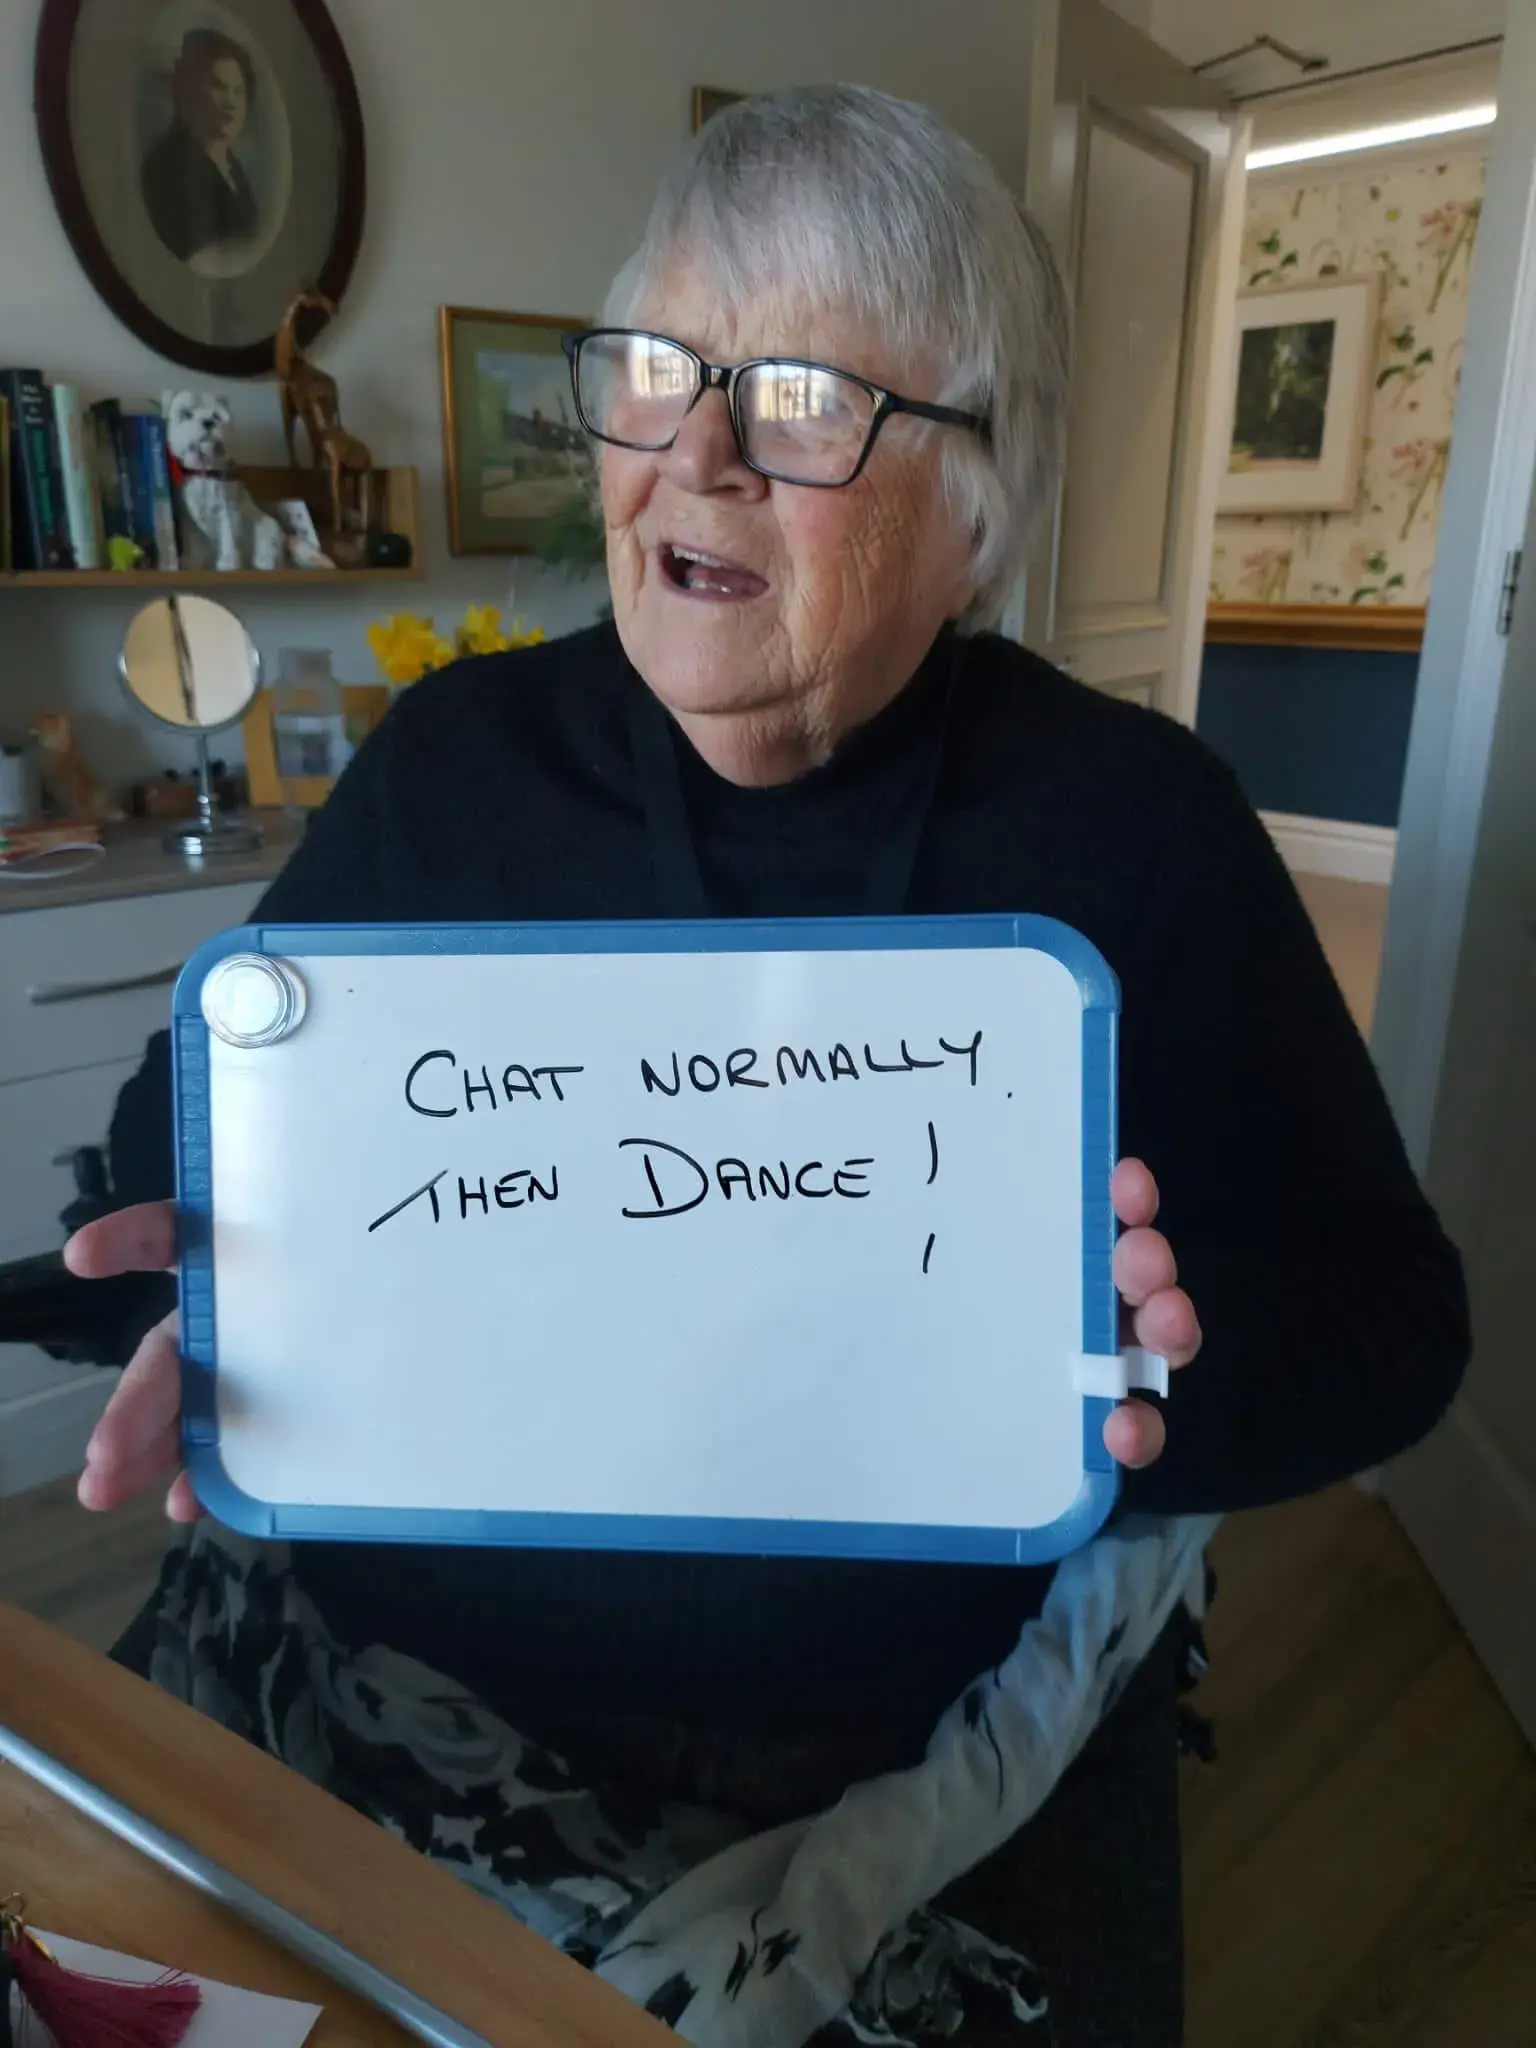 CHAT NORMALLY.
THEN DANCE!